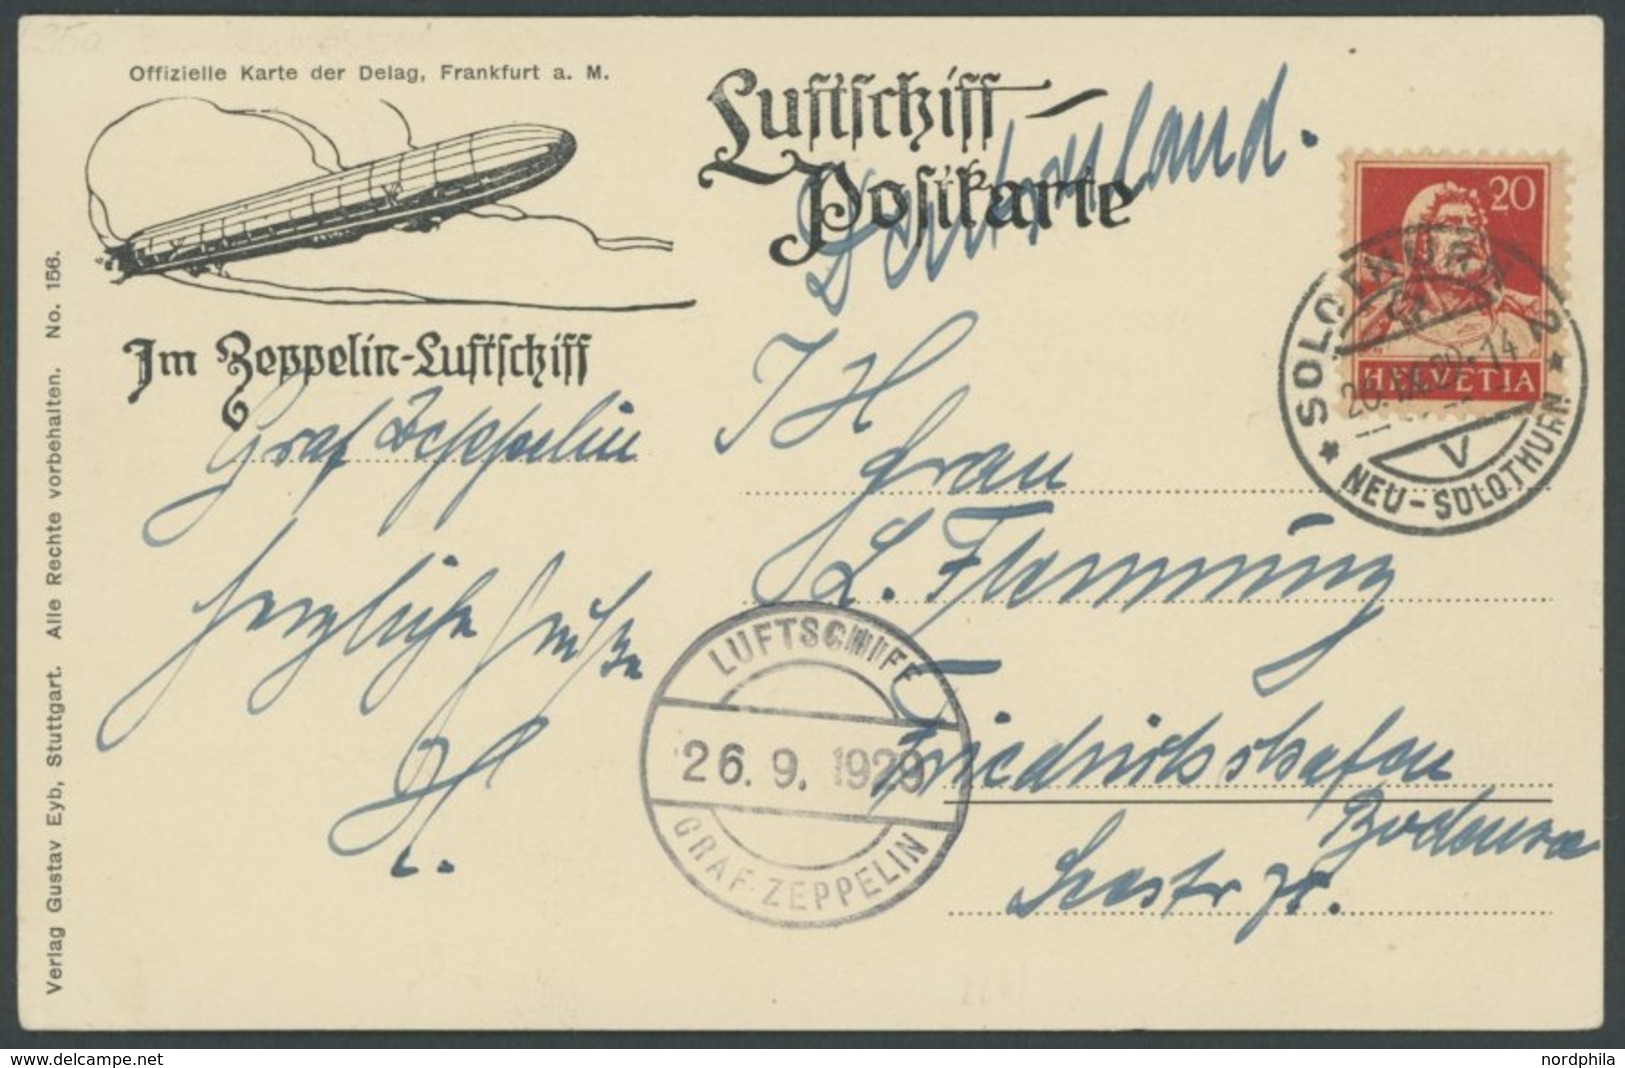 Offizielle Karte der Delag, Frankfurt a. M.
Luftschiff-
Postkarte
Deutschland.
Im Zeppelin-Luftschiff
Graf Zeppelin
herzliche Grüße
20
HELVETIA
SOLOTHURN 2
26.IX.29.-14
V
NEU-SOLOTHURN
Frau
L. Flemming
Friedrichshafen
Bodensee
Seestr
LUFTSCHIFF
26. 9. 1929
GRAF ZEPPELIN
Verlag Gustav Eyb, Stuttgart. Alle Rechte vorbehalten. No. 156.
www.delcampe.net
nordphila